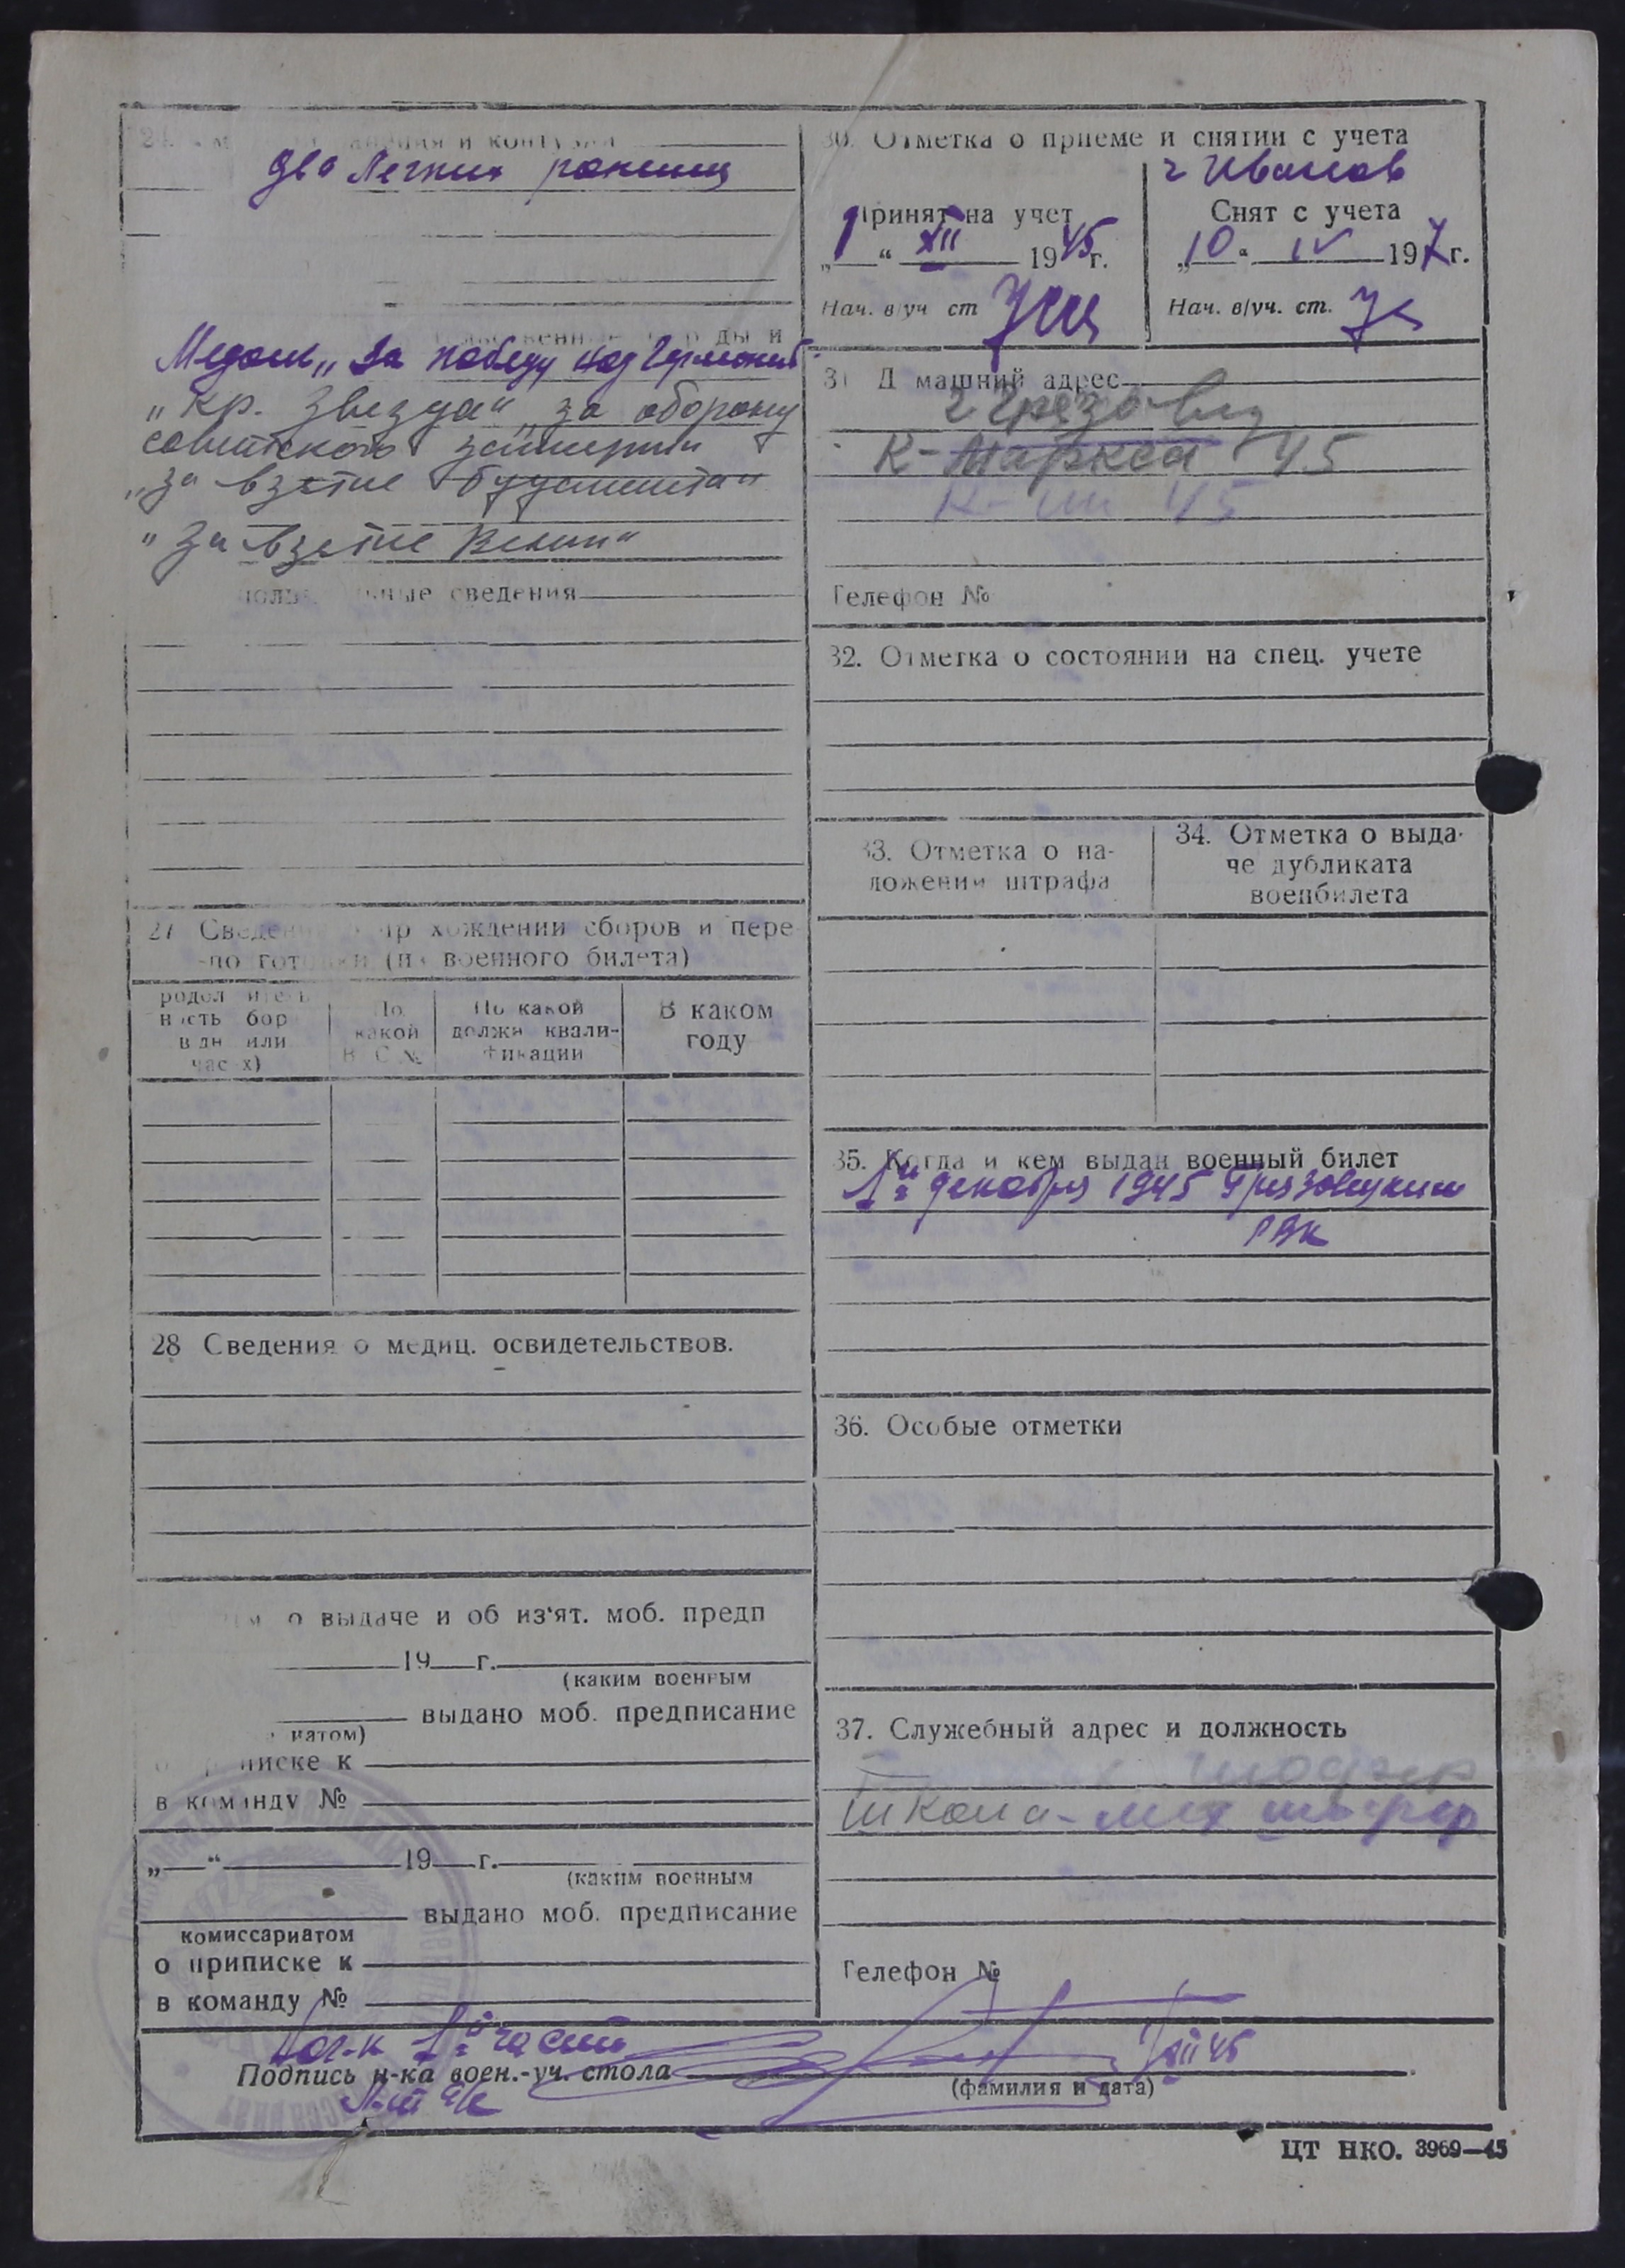 два легких ранения
Медаль „За победу над Германией"
„Кр. Звезда" „за оборону
советского заполярья
„за взятие будапешта"
„За взятие Вены"
сведения
27 Сведени хождении сборов и пере
(из военного билета)
По какой В С №
По какой должн квалификации
В каком году
28 Сведения о медиц. освидетельствов.
о выдаче и об из'ят. моб. предп
19 г.
(каким военным
выдано моб. предписание
в команду №
„ “ 19 г.
(каким военным
выдано моб. предписание
комиссариатом
о приписке к
в команду №
30. Отметка о приеме и снятии с учета
г Иванов
Принят на учет
1 “ XII 1945 г.
Нач. в/уч ст
Снят с учета
„10“ IV 1947 г.
Нач. в/уч. ст.
31 Домашний адрес
г Грязовец
К-Маркса 45
К- 45
Телефон №
32. Отметка о состоянии на спец. учете
33. Отметка о на-
ложении штрафа
34. Отметка о выда-
че дубликата
военбилета
35. Когда и кем выдан военный билет
1го декабря 1945 Грязовецким
РВК
36. Особые отметки
37. Служебный адрес и должность
шофер
школа - мех шофер
Телефон №
части
Подпись н-ка воен.-уч. стола
XII 45
(фамилия и дата)
ЦТ НКО. 3969—45